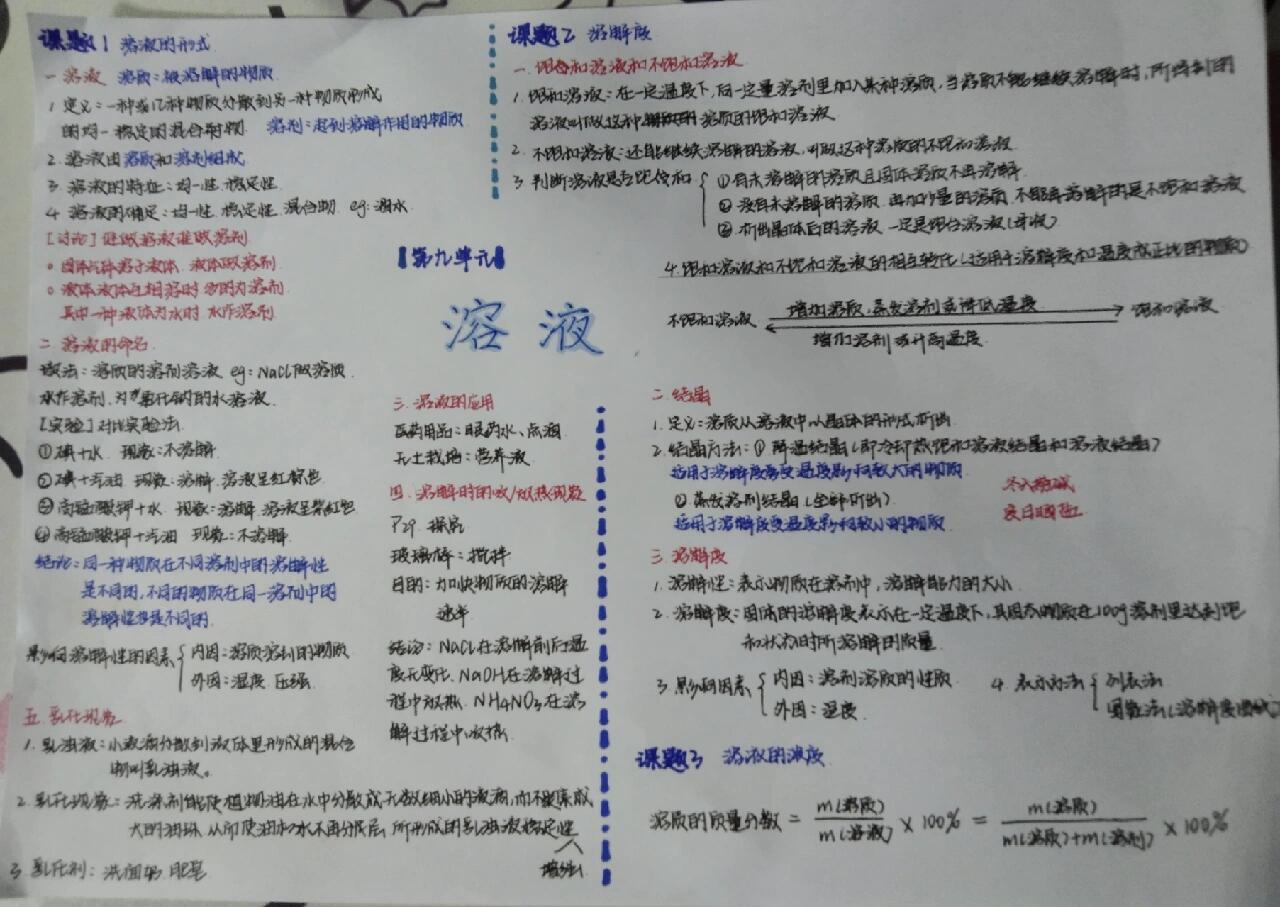 课题1 溶液的形式
一 溶液 溶质:被溶解的物质
1 定义:一种或几种物质分散到另一种物质形成
的均一稳定的混合物 溶剂:起到溶解作用的物质
2. 溶液由溶质和溶剂组成
3 溶液的特征:均一性 稳定性
4 溶液的确定:均一性 稳定性 混合物 eg:酒水
[讨论] 谁做溶液谁做溶剂
固体气体溶于液体 液体做溶剂
液体液体互相溶时 多的为溶剂
其中一种液体为水时 水作溶剂
二 溶液的命名
读法:溶质的溶剂溶液 eg:NaCl做溶质
水作溶剂,为氯化钠的水溶液
[实验] 对比实验法
①碘+水 现象:不溶解
②碘+汽油 现象:溶解 溶液呈红棕色
③高锰酸钾+水 现象:溶解 溶液呈紫红色
④高锰酸钾+汽油 现象:不溶解
结论:同一种物质在不同溶剂中的溶解性
是不同的,不同的物质在同一溶剂中的
溶解性也是不同的
影响溶解性的因素 内因:溶质溶剂的物质
外因:温度 压强
五 乳化现象
1. 乳浊液:小液滴分散到液体里形成的混合
物叫乳浊液。
2 乳化现象:洗涤剂能使植物油在水中分散成无数细小的液滴,而不聚集成
大的油珠 从而使油和水不再分层 所形成的乳浊液稳定性
增强
3 乳化剂:洗面奶 肥皂
【第九单元】
溶液
三 溶液的应用
医药用品:眼药水、点滴
无土栽培:营养液
四 溶解时的吸/放热现象
玻璃棒:搅拌
目的:加快物质的溶解
速率
结论:NaCl在溶解前后温
度无变化 NaOH在溶解过
程中放热 NH4NO3在溶
解过程中吸热
课题2 溶解度
一 饱和溶液和不饱和溶液
1. 饱和溶液:在一定温度下,向一定量溶剂里加入某种溶质,当溶质不能继续溶解时,所得到的
溶液叫做这种溶质的饱和溶液
2. 不饱和溶液:还能继续溶解的溶液,叫做这种溶质的不饱和溶液
3 判断溶液是否饱和 ①有未溶解的溶质且固体溶质不再溶解
② 没有未溶解的溶质 再加少量的溶质 不能再溶解的是不饱和溶液
③ 析出晶体后的溶液 一定是饱和溶液(母液)
4. 饱和溶液和不饱和溶液的相互转化(适用于溶解度和温度成正比的物质)
不饱和溶液 增加溶质,蒸发溶剂或降低温度 饱和溶液
增加溶剂或升高温度
二 结晶
1. 定义:溶质从溶液中以晶体的形式析出
2. 结晶方法:① 降温结晶(即冷却热饱和溶液结晶和溶液结晶)
适用于溶解度受温度影响较大的物质
② 蒸发溶剂结晶(全部析出)
适用于溶解度受温度影响较小的物质
冬入捞碱
夏日晒盐
三 溶解度
1. 溶解性:表示物质在溶剂中,溶解能力的大小
2. 溶解度:固体的溶解度表示在一定温度下,某固态物质在100g溶剂里达到饱
和状态时所溶解的质量
3 影响因素 内因:溶剂溶质的性质
外因:温度
4. 表示方法 列表法
图像法(溶解度曲线)
课题3 溶液的浓度
溶质的质量分数 = m(溶质)/m(溶液) × 100% = m(溶质)/m(溶质)+m(溶剂) × 100%